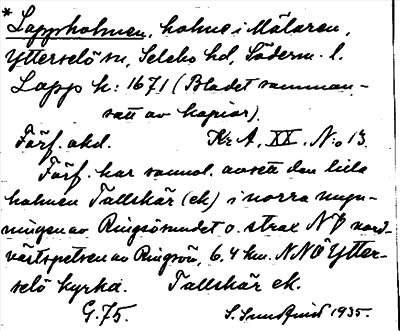 * Lappholmen, holme i Mälaren,
Ytterselö sn, Selebo hd, Söderm. l.
Lapp h: 1671 (Bladet samman-
satt av kopior).
Förf. okd. Kr A, XX, N:o 13.
Förf. har sannol. avsett den lilla
holmen Tallskär (ek) i norra myn-
ningen av Ringsösundet o. strax NV nord-
västspetsen av Ringsön, 6.4 km. NNÖ Ytter-
selö kyrka. Tallskär ek.
G. 75. 1935.